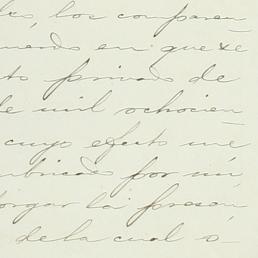 les, los comparen
nuerdo en que se
to privado de
de mil ochocien
cuyo efecto me
ubricado por mí
torgar la presen
de la cual s